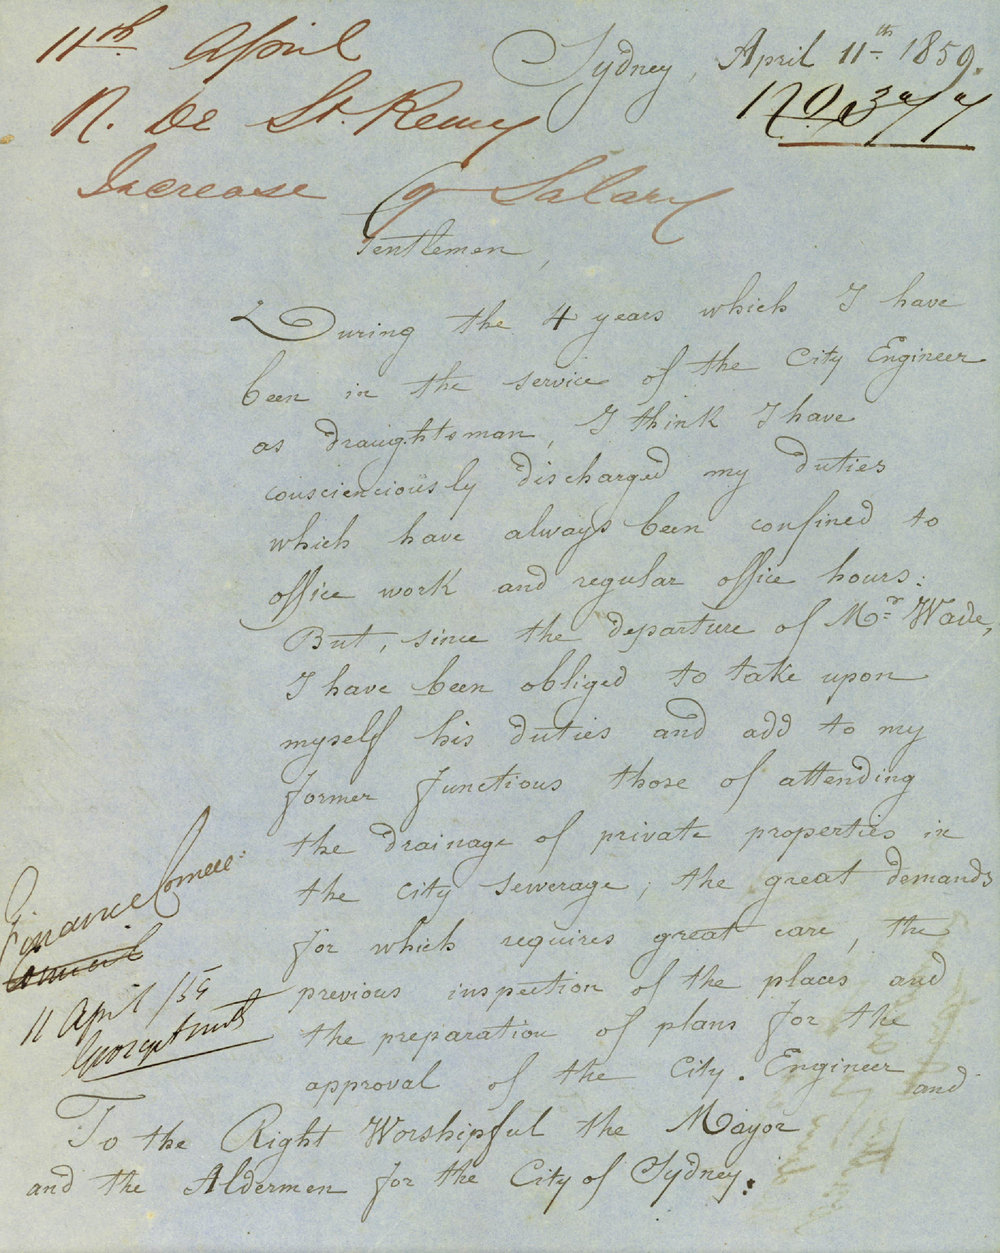 11th April
R. De St. Remy
Increase of Salary
Sydney, April 11th 1859.
No. 377
Gentlemen,
During the 4 years which I have
been in the service of the City Engineer
as draughtsman, I think I have
conscienciously discharged my duties
which have always been confined to
office work and regular office hours:
But, since the departure of Mr Wade,
I have been obliged to take upon
myself his duties and add to my
former functions those of attending
the drainage of private properties in
the city sewerage; the great demands
for which requires great care, the
previous inspection of the places and
the preparation of plans for the
approval of the City Engineer and
Finance Comee.
Council
11 April /59
George Smith
To the Right Worshipful the Mayor
and the Aldermen for the City of Sydney.